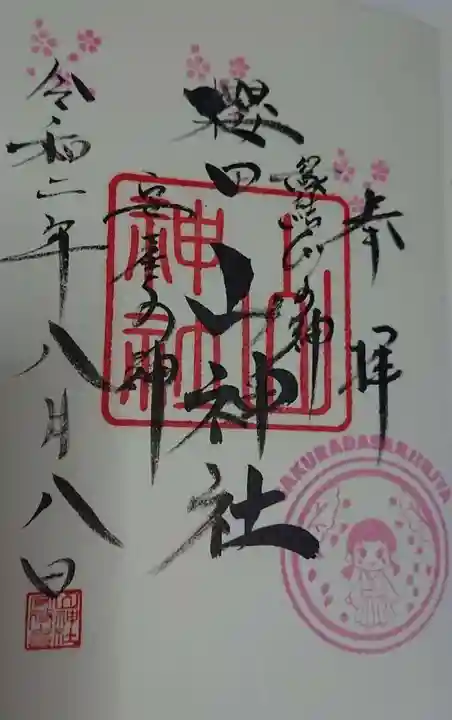 奉拝
縁結びの神
櫻田山神社
安産の神
令和二年八月八日
山神社